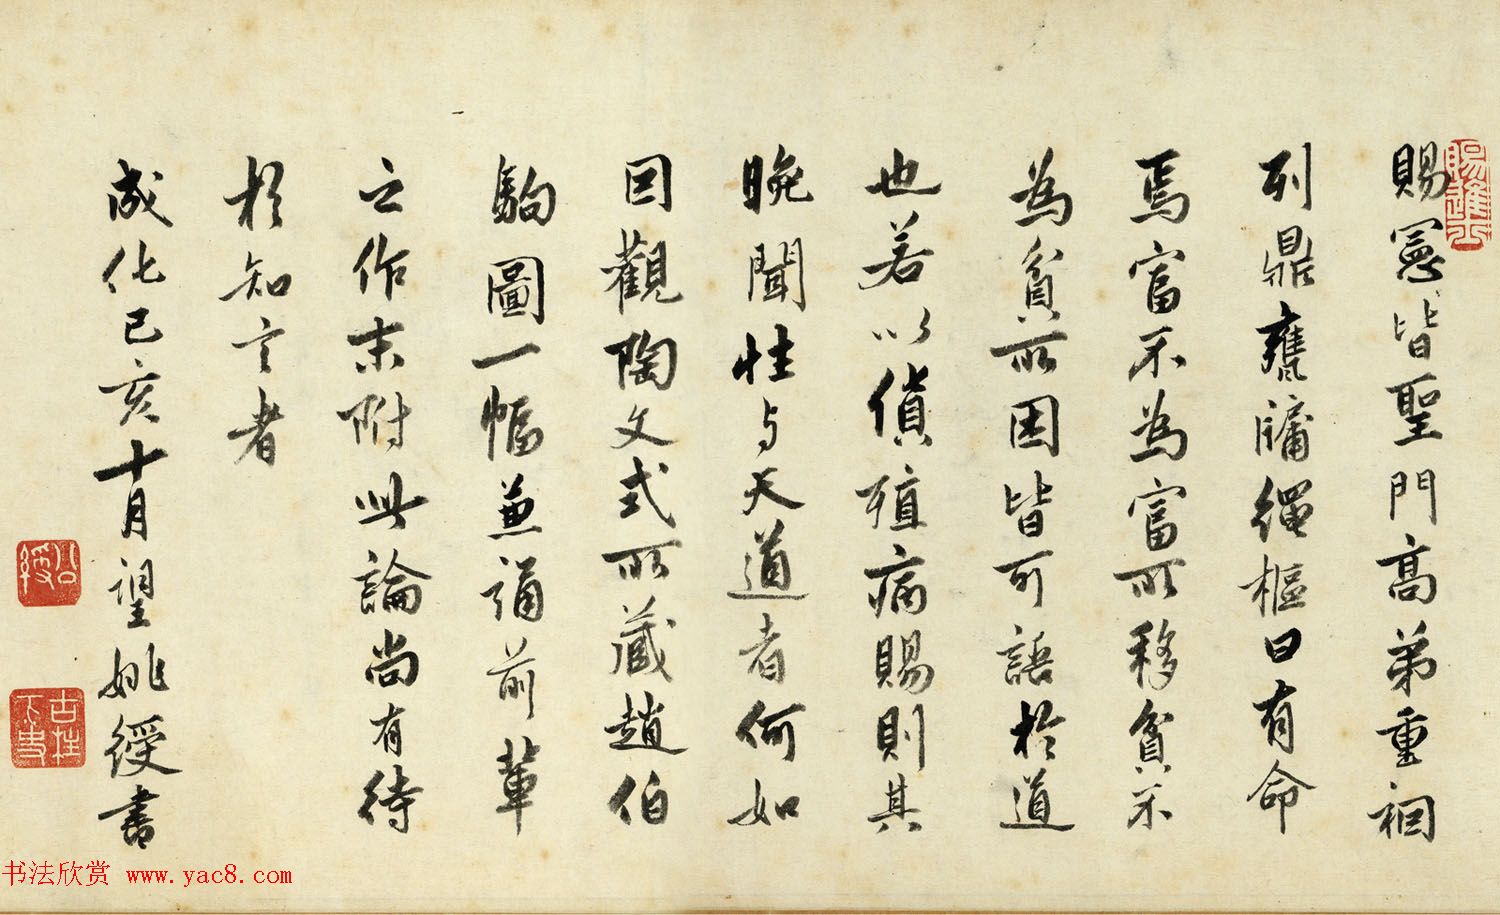 賜憲皆聖門高弟重裀
列鼎甕牖繩樞曰有命
焉富不為富所移貧不
為貧所困皆可語於道
也若以貨殖病賜則其
晚聞性与天道者何如
因觀陶文式所藏趙伯
駒圖一幅兼誦前輩
之作末附此論尚有待
於知言者
成化己亥十月望姚綬書
公綬
古柱下史
书法欣赏 www.yac8.com